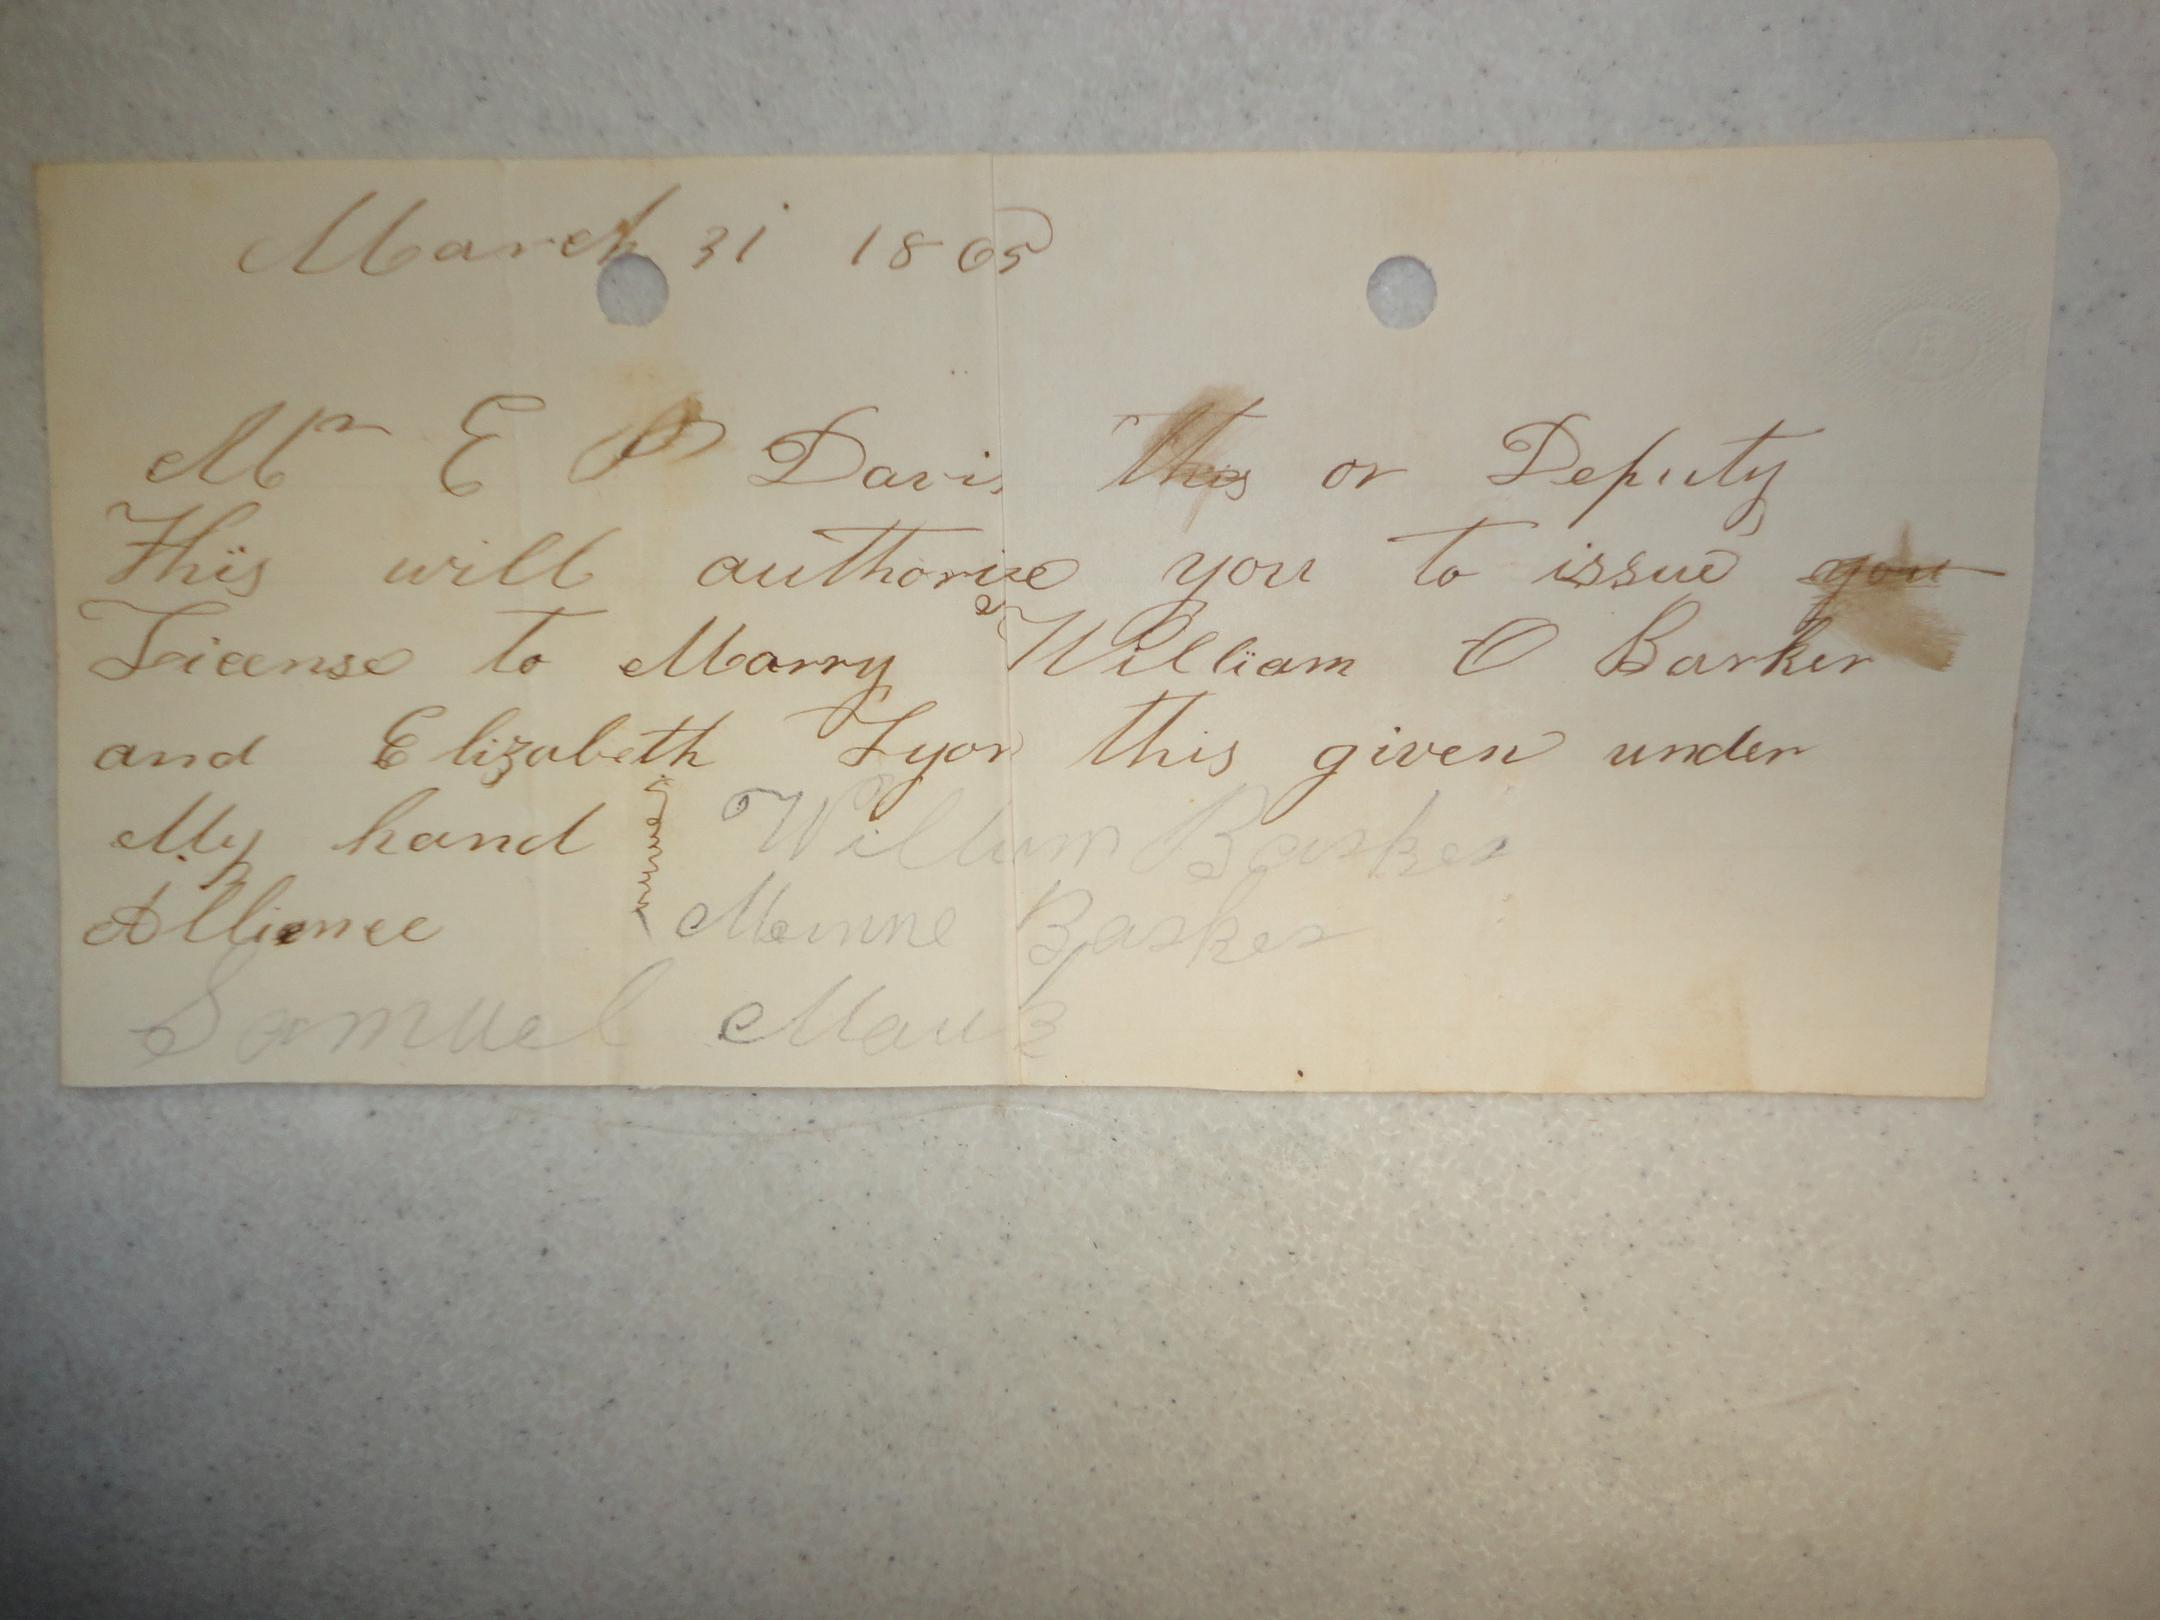 March 31 1865
Mr E P Davis this or Deputy
This will authorise you to issue you
License to Marry William O Barker
and Elizabeth Lyon this given under
My hand William Barker
Allience Barker
Samuel Mauk